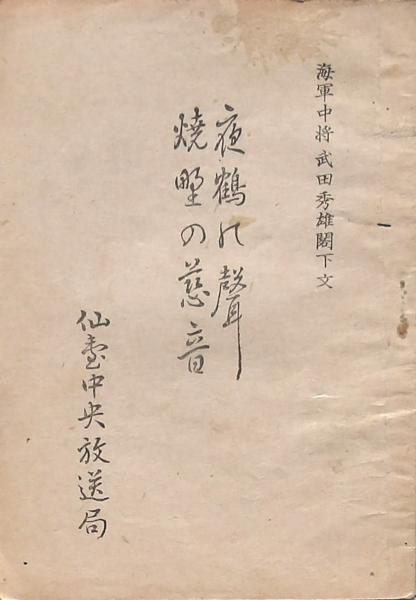 海軍中将武田秀雄閣下文
夜鶴の聲
焼野の慈音
仙臺中央放送局